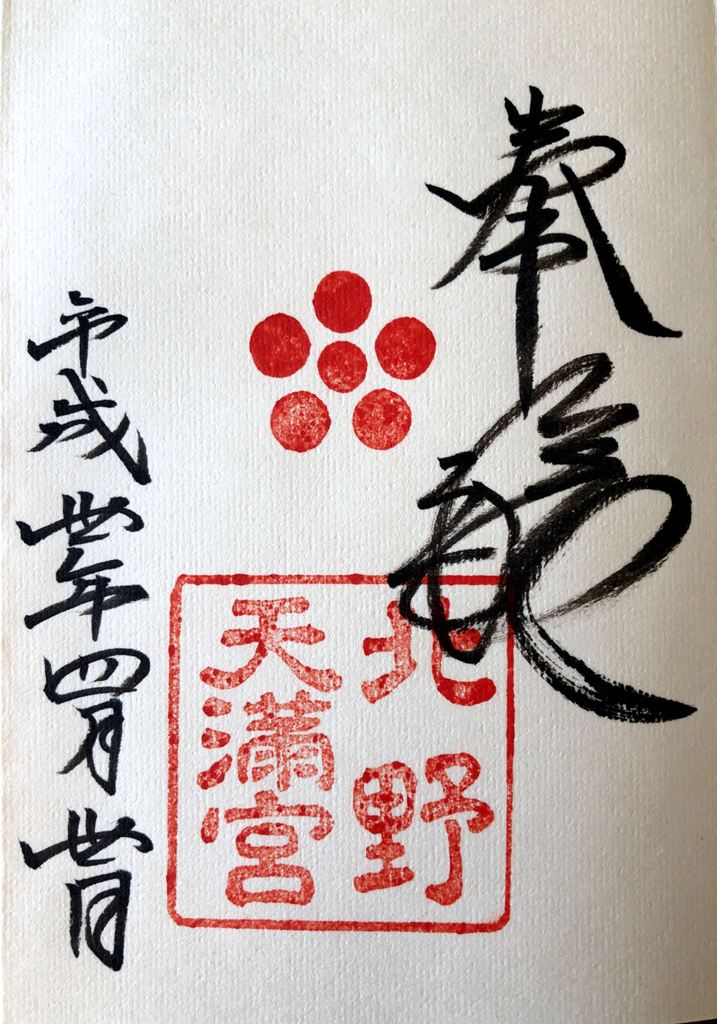 奉
北野
天満宮
平成丗年四月丗日